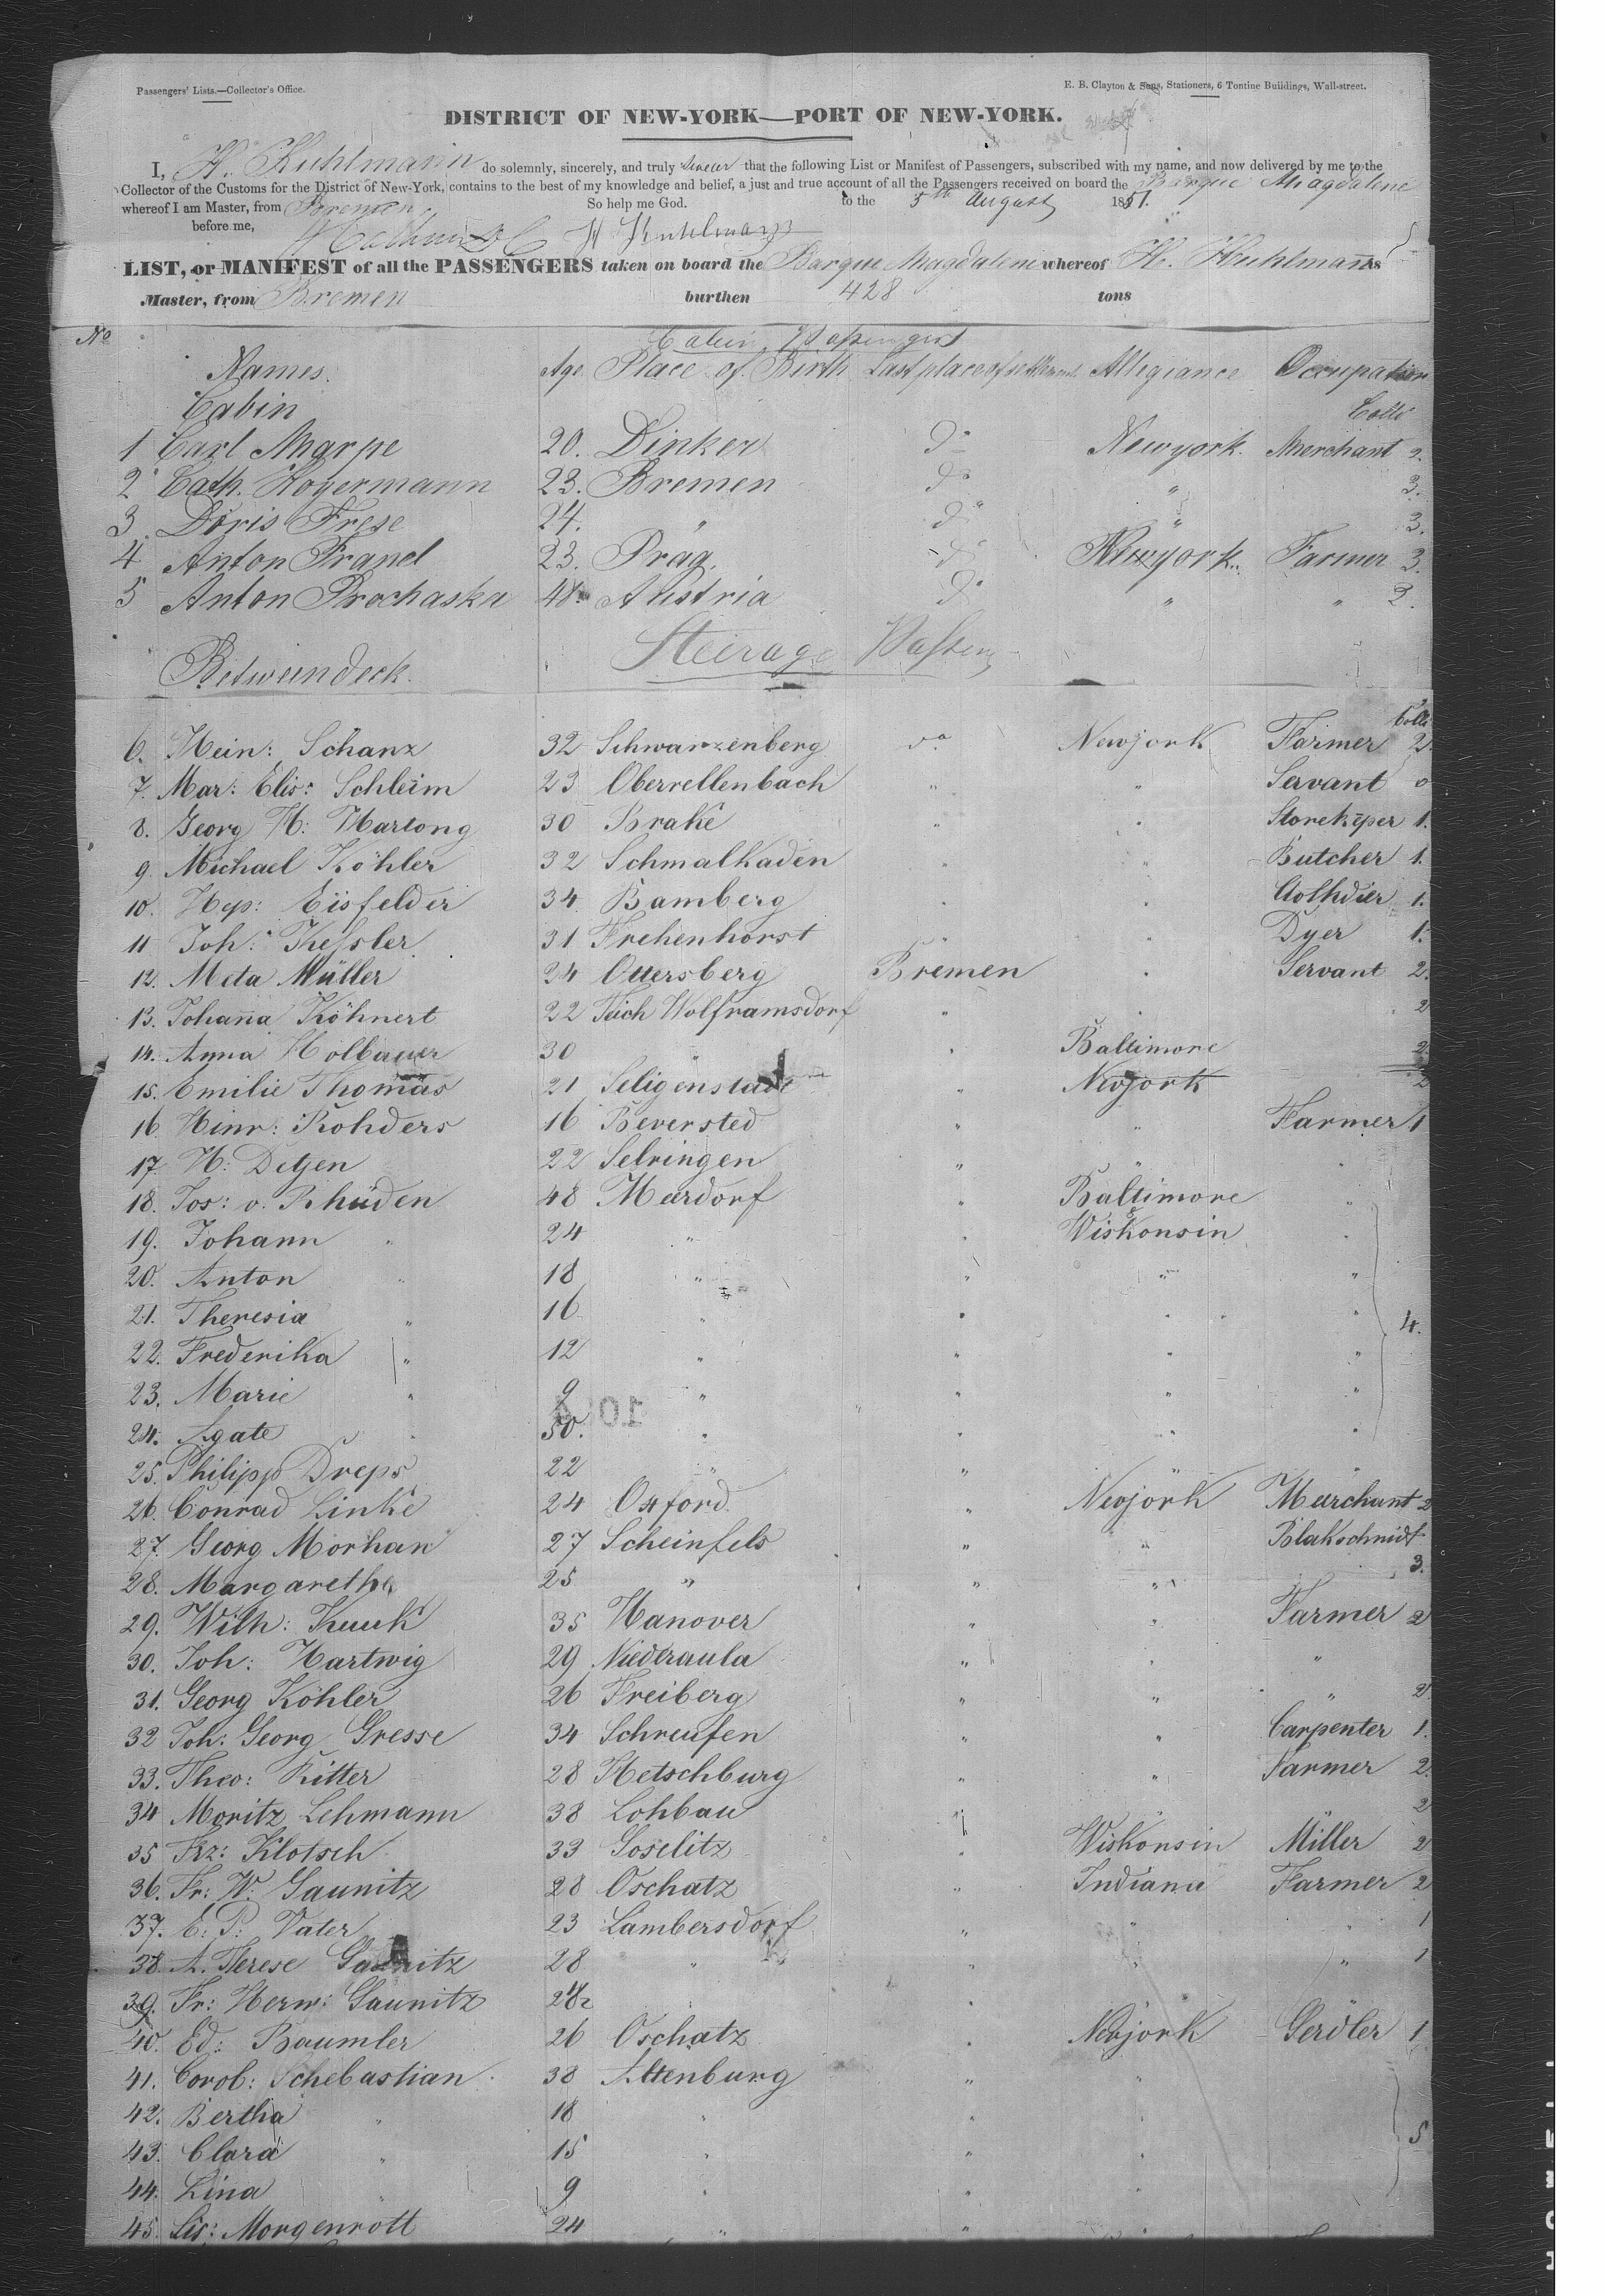 Passengers' Lists.—Collector's Office.
E. B. Clayton & Sons, Stationers, 6 Tontine Buildings, Wall-street.
DISTRICT OF NEW-YORK—PORT OF NEW-YORK.
I, H. Kuhlmann do solemnly, sincerely, and truly swear that the following List or Manifest of Passengers, subscribed with my name, and now delivered by me to the
Collector of the Customs for the District of New-York, contains to the best of my knowledge and belief, a just and true account of all the Passengers received on board the Barque Magdalene
whereof I am Master, from Bremen. So help me God. to the 5th August 1851.
before me, H Kuhlmann
LIST, or MANIFEST of all the PASSENGERS taken on board the Barque Magdalene whereof H. Kuhlmann is
Master, from Bremen burthen 428 tons
No
Cabin Passengers
Names. Age Place of Birth Last place of settlement Allegiance Occupation
Cabin Colli
1 Carl Marpe 20. Dinker do Newyork. Merchant 2.
2 Cath. Hoyermann 23. Bremen do " 3.
3 Doris Frese 24. " do " 3.
4 Anton Franel 23. Prag. do Newyork. Farmer 3.
5 Anton Prochaska 48. Austria do " " 2.
Steirage Passen
Betweendeck.
Colli
6. Hein: Schanz 32 Schwarzenberg do Newjork Farmer 2.
7. Mar: Elis: Schleim 23 Oberrellenbach " " Servant 0
8. Georg H: Hartong 30 Brake " " Storekeper 1.
9. Michael Köhler 32 Schmalkaden " " Butcher 1.
10. Hep: Eisfelder 34 Bamberg " " Clothdier 1.
11 Joh: Kessler 31 Frehenhorst " " Dyer 1.
12. Meta Müller 24 Ottersberg Bremen " Servant 2.
13. Johanna Köhnert 22 Teich Wolframsdorf " " " 2
14. Anna Holbauer 30 " " Baltimore 2.
15. Emilie Thomas 21 Seligenstadt " Newjork 2
16 Hinr: Rohders 16 Beversted " " Farmer 1
17. H: Detjen 22 Selringen " " "
18. Jos: v. Rhüden 48 Mardorf " Baltimore "
19. Johann " 24 " " Wiskonsin "
20. Anton " 18 " " " "
21. Theresia " 16 " " " " 4.
22. Frederika " 12 " " " "
23. Marie " 9 " " " "
24. Agate " 50. " " " "
25. Philipp Dreps 22 " " " "
26. Conrad Linke 24 Oxford " Newjork Marchunt 2
27. Georg Morhan 27 Scheinfels " " Blakschmidt
28. Margaretha 25 " " " 3.
29. Wilh: Kuuk 35 Hanover " " Farmer 2
30. Joh: Hartwig 29 Niederaula " " "
31. Georg Köhler 26 Freiberg " " " 2.
32 Joh: Georg Gresse 34 Schreufen " " Carpenter 1.
33. Theo: Ritter 28 Hetschburg " " Farmer 2.
34 Moritz Lehmann 38 Lohbau " 2
35 Frz: Klotsch 33 Goselitz " Wiskonsin Miller 2
36. Fr: W: Gaunitz 28 Oschatz " Indiana Farmer 2
37. E: P: Vater 23 Lambersdorf " " " 1
38. A. Therese Gaunitz 28 " " " " 1
39. Fr: Herm: Gaunitz " "
40. Ed: Baumler 26 Oschatz " Newjork Gerdler 1
41. Corob: Schebastian 38 Altenburg " "
42. Bertha " 18 " " "
43. Clara " 15 " " " 5
44. Lina " 9 " " "
45. Lis: Morgenrott 24 " "